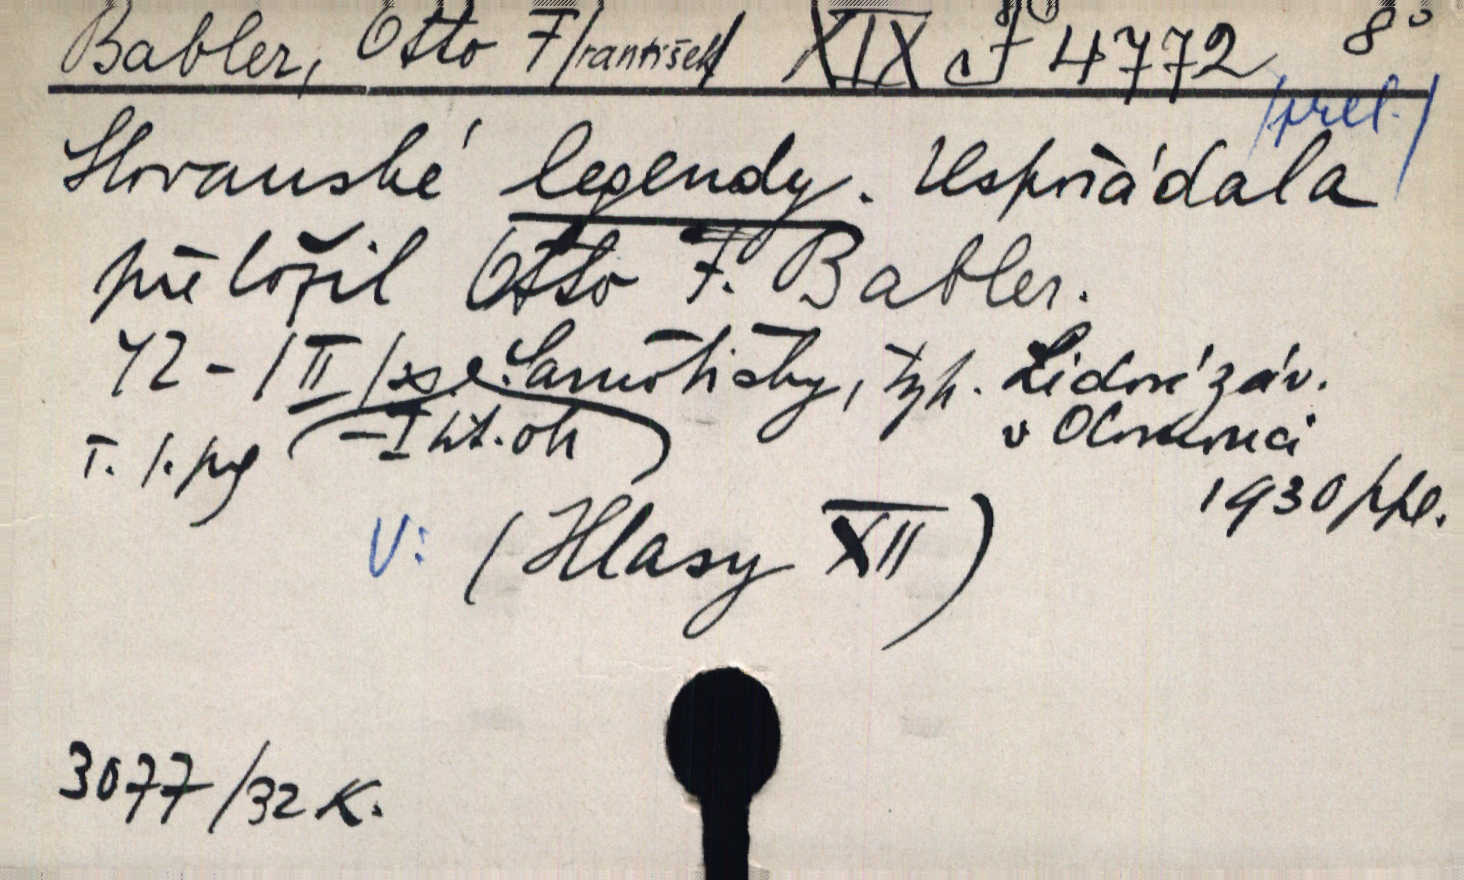 Babler, Otto F/rantišek/ XIX J 4772 8°
/přel./
Slovanské legendy. Uspořádal a
přeložil Otto F. Babler.
42 - /II/ s. Samotišky, typ. Lidové záv.
- I lit. oh v Olomouci
T. 1. pg
1930 /
V: (Hlasy XII)
3077/32 K.